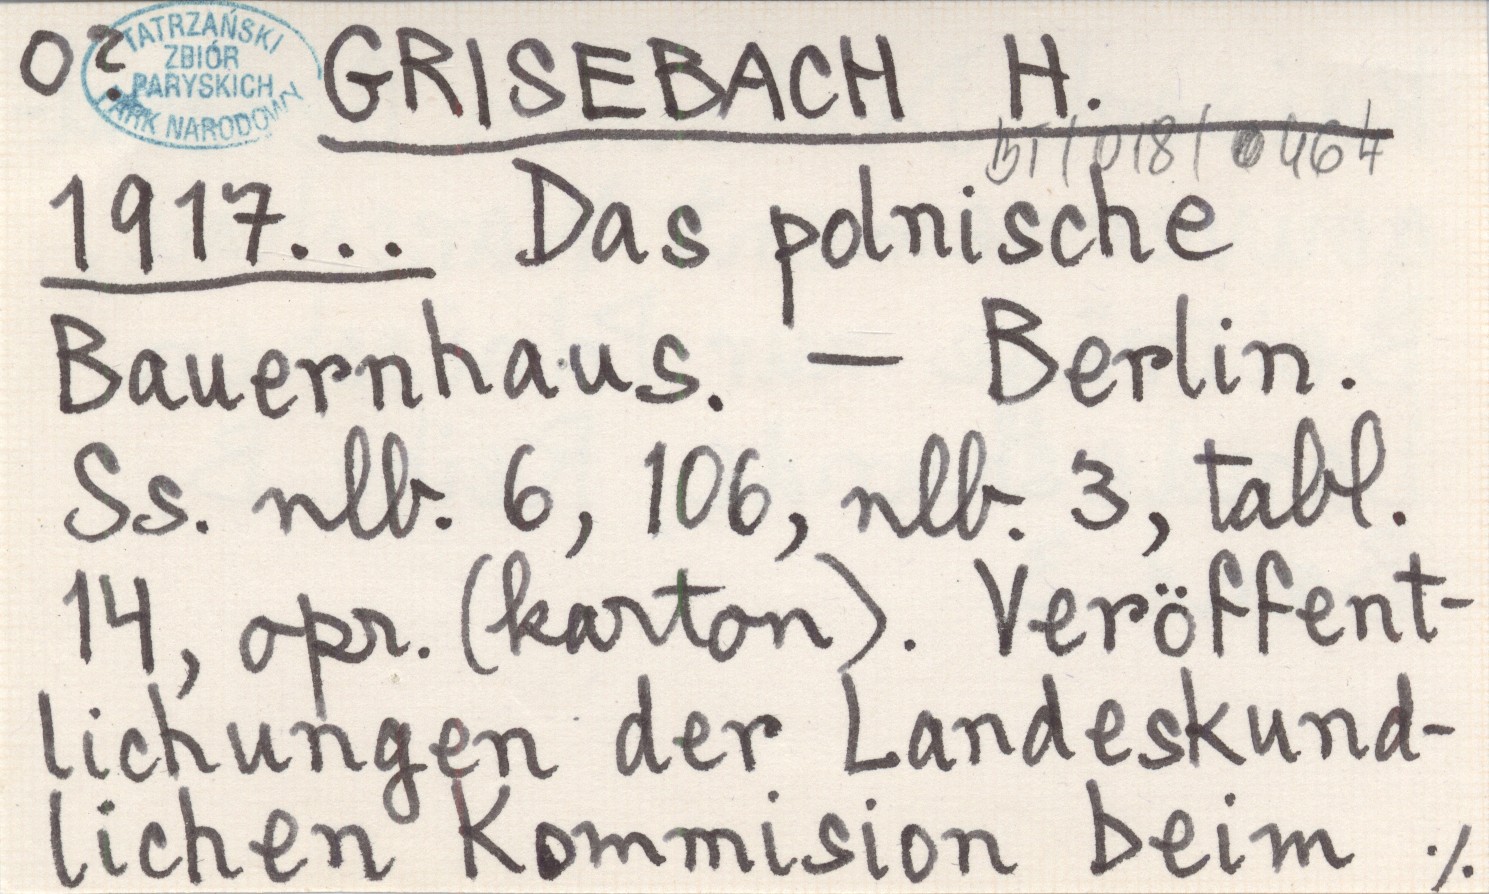 02.
TATRZAŃSKI
ZBIÓR
PARYSKICH
PARK NARODOWY
GRISEBACH H.
1917... Das polnische
Bauernhaus. — Berlin.
Ss. nlb. 6, 106, nlb. 3, tabl.
14, opr. (karton). Veröffent-
lichungen der Landeskund-
lichen Kommision beim ./.